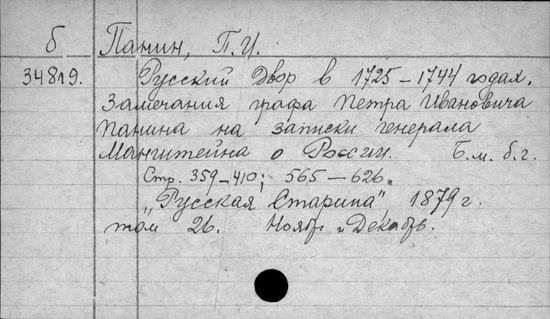 б Панин, П.И.
34819. Русский Двор в 1725-1744 годах.
Замечания графа Петра Ивановича
Панина на записки генерала
Манштейна о России. Б.м. б.г.
Стр. 359-410; 565-626.
„Русская Старина", 1879 г.
том 26. Ноябр. и Декабрь.